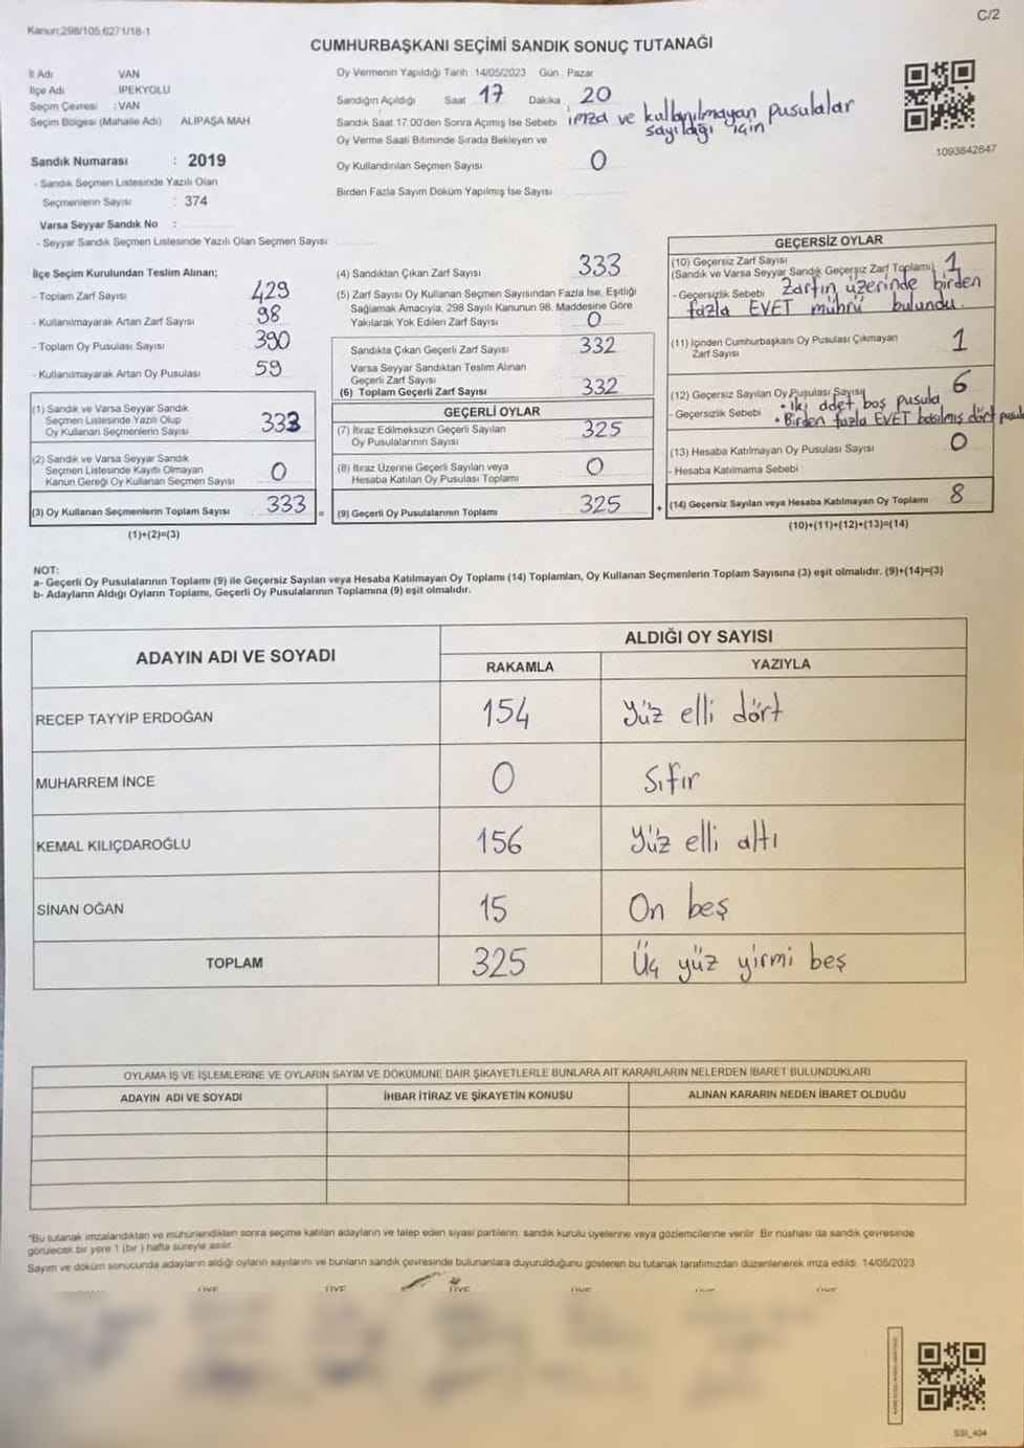 C/2
Kanun:298/105,6271/18-1
CUMHURBAŞKANI SEÇİMİ SANDIK SONUÇ TUTANAĞI
İl Adı VAN
İlçe Adı İPEKYOLU
Seçim Çevresi : VAN
Seçim Bölgesi (Mahalle Adı) ALİPAŞA MAH
Sandık Numarası : 2019
- Sandık Seçmen Listesinde Yazılı Olan
Seçmenlerin Sayısı : 374
Varsa Seyyar Sandık No :
- Seyyar Sandık Seçmen Listesinde Yazılı Olan Seçmen Sayısı
Oy Vermenin Yapıldığı Tarih : 14/05/2023 Gün : Pazar
Sandığın Açıldığı Saat 17 Dakika 20
Sandık Saat 17:00'den Sonra Açımış İse Sebebi imza ve kullanılmayan pusulalar
sayıldığı için
Oy Verme Saati Bitiminde Sırada Bekleyen ve
Oy Kullandırılan Seçmen Sayısı 0
Birden Fazla Sayım Döküm Yapılmış İse Sayısı
1093842847
İlçe Seçim Kurulundan Teslim Alınan;
- Toplam Zarf Sayısı 429
- Kullanılmayarak Artan Zarf Sayısı 98
- Toplam Oy Pusulası Sayısı 390
- Kullanılmayarak Artan Oy Pusulası 59
(1) Sandık ve Varsa Seyyar Sandık
Seçmen Listesinde Yazılı Olup
Oy Kullanan Seçmenlerin Sayısı 333
(2) Sandık ve Varsa Seyyar Sandık
Seçmen Listesinde Kayıtlı Olmayan
Kanun Gereği Oy Kullanan Seçmen Sayısı 0
(3) Oy Kullanan Seçmenlerin Toplam Sayısı 333 =
(1)+(2)=(3)
(4) Sandıktan Çıkan Zarf Sayısı 333
(5) Zarf Sayısı Oy Kullanan Seçmen Sayısından Fazla İse, Eşitliği
Sağlamak Amacıyla, 298 Sayılı Kanunun 98. Maddesine Göre
Yakılarak Yok Edilen Zarf Sayısı 0
Sandıkta Çıkan Geçerli Zarf Sayısı 332
Varsa Seyyar Sandıktan Teslim Alınan
Geçerli Zarf Sayısı
(6) Toplam Geçerli Zarf Sayısı 332
GEÇERLİ OYLAR
(7) İtiraz Edilmeksizin Geçerli Sayılan
Oy Pusulalarının Sayısı 325
(8) İtiraz Üzerine Geçerli Sayılan veya
Hesaba Katılan Oy Pusulası Toplamı 0
(9) Geçerli Oy Pusulalarının Toplamı 325 +
GEÇERSİZ OYLAR
(10) Geçersiz Zarf Sayısı
(Sandık ve Varsa Seyyar Sandık Geçersiz Zarf Toplamı) 1
- Geçersizlik Sebebi Zarfın üzerinde birden
fazla EVET mührü bulundu.
(11) İçinden Cumhurbaşkanı Oy Pusulası Çıkmayan
Zarf Sayısı 1
(12) Geçersiz Sayılan Oy Pusulası Sayısı 6
- Geçersizlik Sebebi • iki adet boş pusula
• Birden fazla EVET basılmış dört pusula
(13) Hesaba Katılmayan Oy Pusulası Sayısı 0
- Hesaba Katılmama Sebebi
(14) Geçersiz Sayılan veya Hesaba Katılmayan Oy Toplamı 8
(10)+(11)+(12)+(13)=(14)
NOT:
a- Geçerli Oy Pusulalarının Toplamı (9) ile Geçersiz Sayılan veya Hesaba Katılmayan Oy Toplamı (14) Toplamları, Oy Kullanan Seçmenlerin Toplam Sayısına (3) eşit olmalıdır. (9)+(14)=(3)
b- Adayların Aldığı Oyların Toplamı, Geçerli Oy Pusulalarının Toplamına (9) eşit olmalıdır.
ADAYIN ADI VE SOYADI ALDIĞI OY SAYISI
RAKAMLA YAZIYLA
RECEP TAYYİP ERDOĞAN 154 Yüz elli dört
MUHARREM İNCE 0 Sıfır
KEMAL KILIÇDAROĞLU 156 Yüz elli altı
SİNAN OĞAN 15 On beş
TOPLAM 325 Üç yüz yirmi beş
OYLAMA İŞ VE İŞLEMLERİNE VE OYLARIN SAYIM VE DÖKÜMÜNE DAİR ŞİKAYETLERLE BUNLARA AİT KARARLARIN NELERDEN İBARET BULUNDUKLARI
ADAYIN ADI VE SOYADI İHBAR İTİRAZ VE ŞİKAYETİN KONUSU ALINAN KARARIN NEDEN İBARET OLDUĞU
"Bu tutanak imzalandıktan ve mühürlendikten sonra seçime katılan adayların ve talep eden siyasi partilerin, sandık kurulu üyelerine veya gözlemcilerine verilir. Bir nüshası da sandık çevresinde
görülecek bir yere 1 (bir) hafta süreyle asılır.
Sayım ve döküm sonucunda adayların aldığı oyların sayılarını ve bunların sandık çevresinde bulunanlara duyurulduğunu gösteren bu tutanak tarafımızdan düzenlenerek imza edildi. 14/05/2023
SSI_404